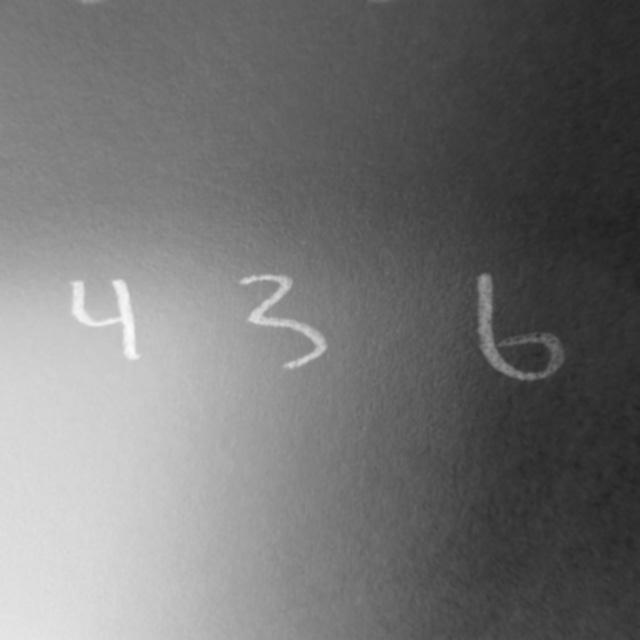 4 3 6